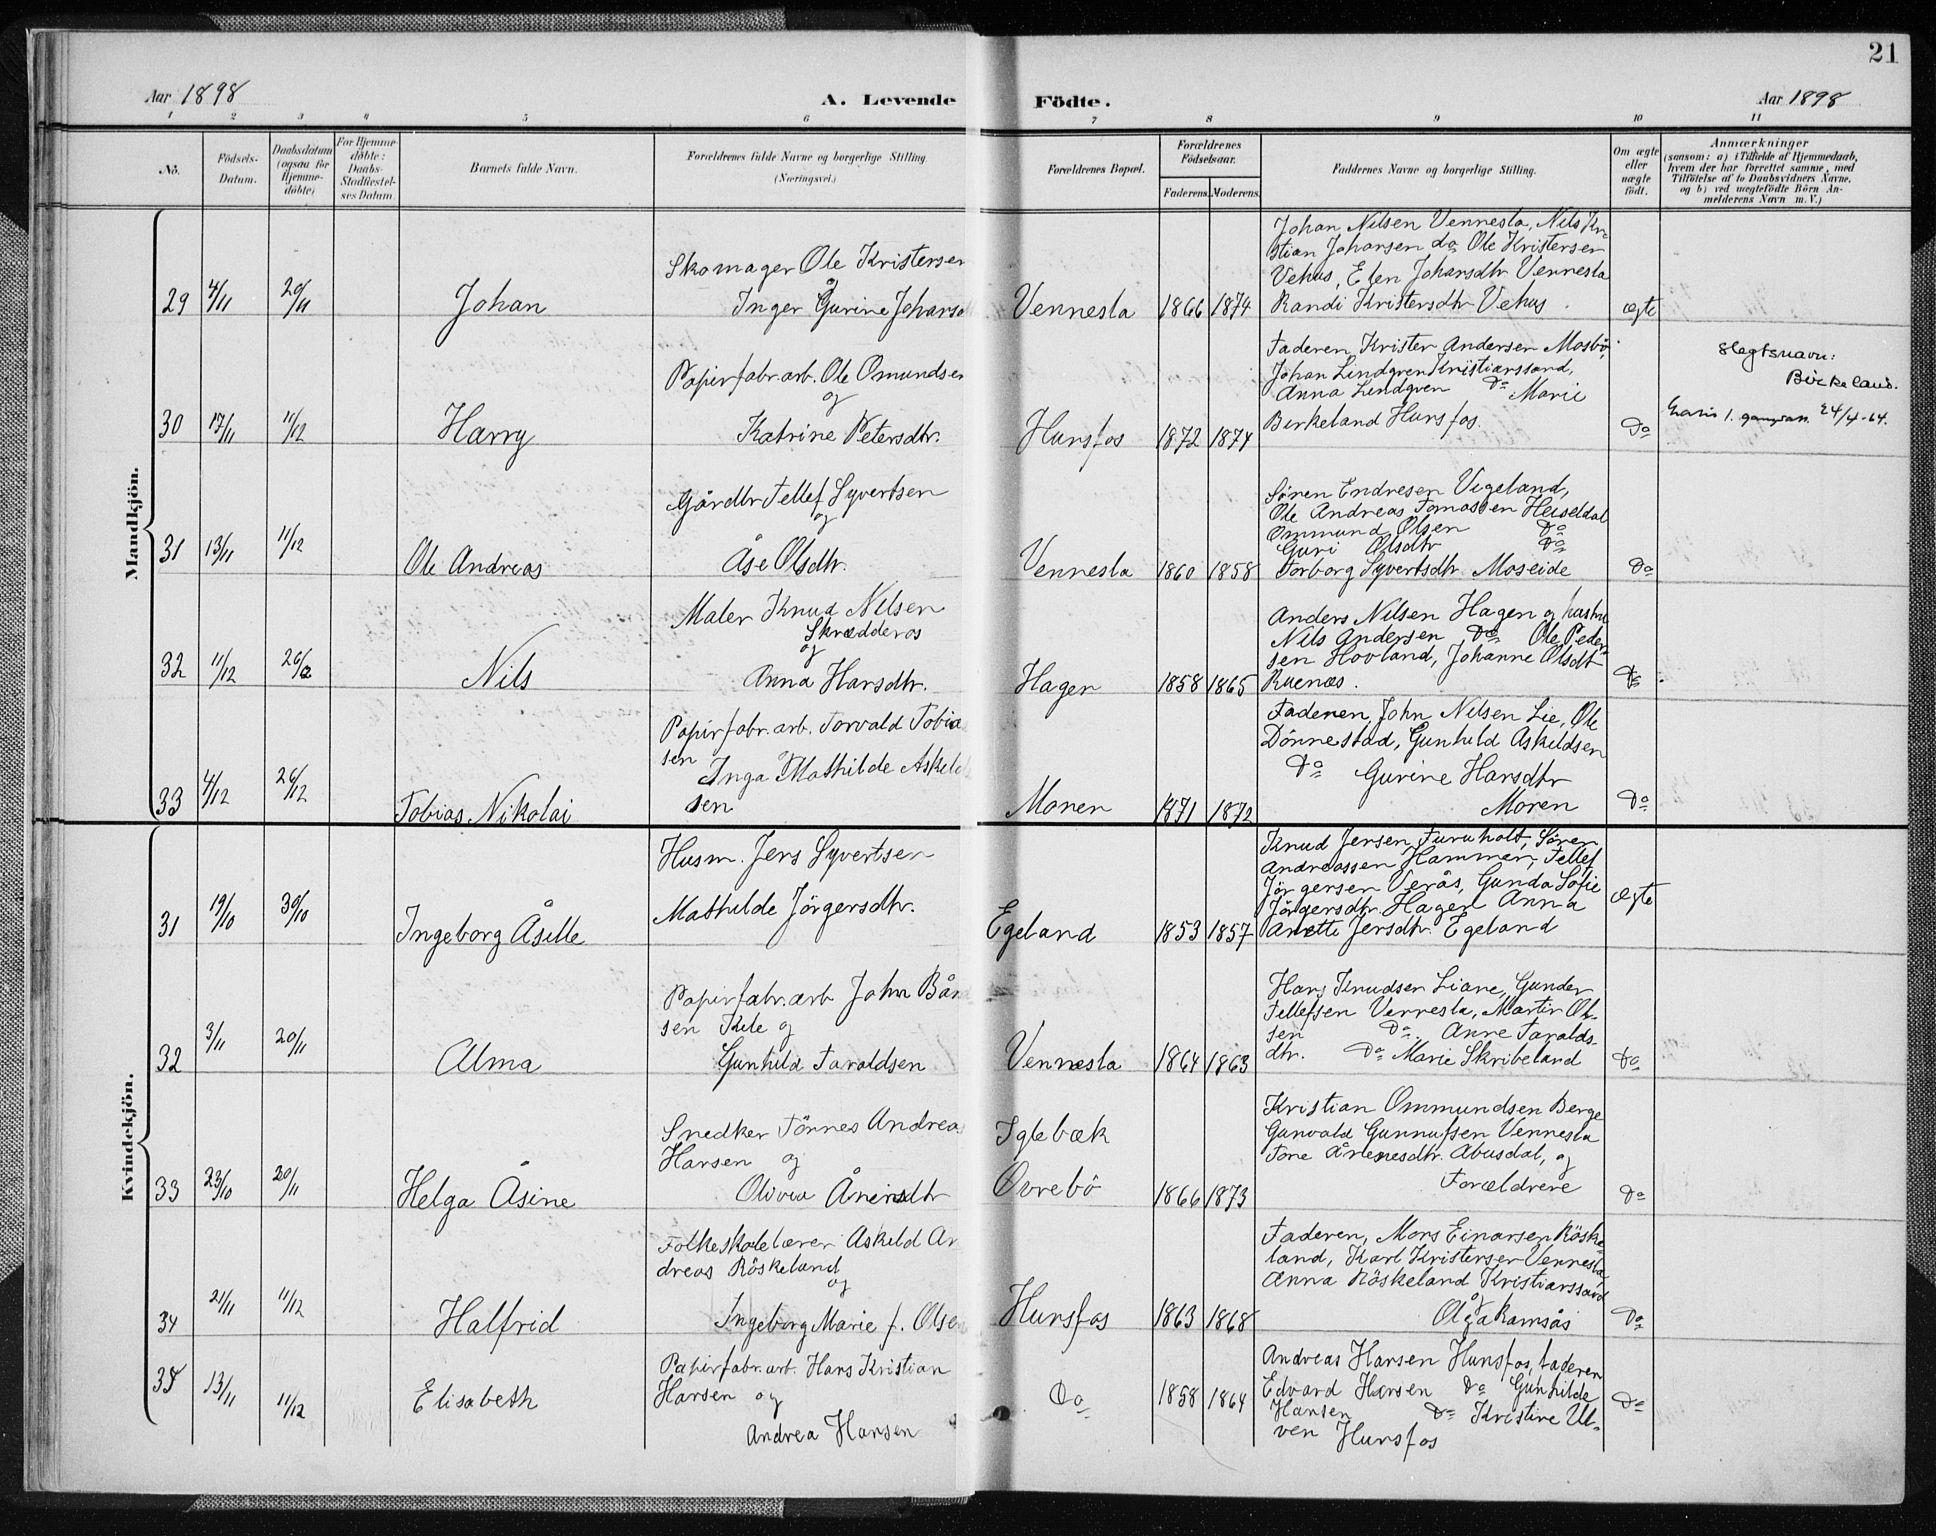 21
Aar 1898
A. Levende Födte.
Aar 1898
1 2 3 4 5 6 7 8 9 10 11
No.
Födsels-Datum.
Daabsdatum (ogsaa för Hjemme-döbte)
For Hjemme-döbte: Daabs-Stadfæstel-ses Datum
Barnets fulde Navn.
Forældrenes fulde Navne og borgerlige Stilling (Næringsvei.)
Forældrenes Bopæl.
Forældrenes Födselsaar.
Faderens. Moderens.
Faddernes Navne og borgerlige Stilling.
Om ægte eller uægte födt.
Anmærkninger
(saasom: a) i Tilfælde af Hjemmedaab,
hvem der har forrettet samme, med
Tilföielse af to Daabsvidners Navne,
og b) ved uægtefödte Börn An-
melderens Navn m. V.)
Mandkjön.
29 4/11 20/11 Johan
Skomager Ole Kristensen
og
Inger Gurine Johansd
Vennesla 1866 1874
Johan Nilsen Vennesla, Nils Kri-
stian Johansen do, Ole Kristensen
Vehus, Elen Johansdtr Vennesla
Randi Kristensdtr Vehus.
ægte
30 17/11 11/12 Harry
Papirfabr.arb. Ole Omundsen
og
Katrine Petersdtr.
Hunsfos 1872 1874
Faderen, Krister Andersen Mosbö,
Johan Lindgren Kristianssand,
Anna Lindgren Do Marie
Birkeland Hunsfos.
Do
Slegtsnavn:
Birkeland.
24/4-64.
31 13/11 11/12 Ole Andreas
Gårdbr Tellef Syvertsen
og
Åse Olsdtr.
Vennesla 1860 1858
Sören Endresen Vigeland,
Ole Andreas Tomassen Heiseldal
Ommund Olsen Do
Guri Olsdtr Do
Torborg Syvertsdtr Moseide
Do
32 11/12 26/12 Nils
Maler Knud Nilsen
Skrædderås
og
Anna Hansdtr.
Hagen 1858 1865
Anders Nilsen Hagen og hustru
Nils Andersen Do Ole Peder-
sen Hovland, Johanne Olsdt
Ruenæs.
Do
33 4/12 26/12 Tobias Nikolai
Papirfabr.arb. Torvald Tobia
sen
Inga Mathilde Askeld
sen
Moren 1871 1872
Faderen, John Nilsen Lie, Ole
Dönnestad, Gunhild Askildsen
Do Gurine Hansdtr
Moren
Do
Kvindekjön.
31 19/10 30/10 Ingeborg Åselle
Husm. Jens Syvertsen
Mathilde Jörgensdtr.
Egeland 1853 1857
Knud Jensen Furuholt, Sören
Andreassen Hammen, Tellef
Jörgensen Verås, Gunda Sofie
Jörgensdtr. Hagen Anna
Anette Jensdtr. Egeland
ægte
32 3/11 20/11 Alma
Papirfabr.arb John Bård
sen Kile og
Gunhild Taraldsen
Vennesla 1864 1863
Hans Knudsen Liane, Gunder
Tellefsen Vennesla, Martin Ol-
sen Do. Anne Taralds-
dtr. Do Marie Skribeland
Do
33 23/10 20/11 Helga Åsine
Snedker Tönnes Andreas
Hansen og
Olivia Ånensdtr
Iglebæk
Övrebö 1866 1873
Kristian Ommundsen Berge
Gunvald Gunnufsen Vennesla
Tone Ånenesdtr. Abusdal, og
Forældrene
Do
34 21/11 11/12 Halfrid
Folkeskolelærer Askild An
dreas Röskeland
og
Ingeborg Marie f. Olsen
Hunsfos 1863 1868
Faderen, Mons Einarsen Röske-
land, Karl Kristensen Vennesla,
Anna Röskeland Kristianssand
og
Olga Ramsås
Do
35 13/11 11/12 Elisabeth
Papirfabr.arb. Hans Kristian
Hansen og
Andrea Hansen
Do 1858 1864
Andreas Hansen Hunsfos, faderen
Edvard Hansen Do Gunhilde
Hansen Do Kristine Ul-
ven Hunsfos
Do